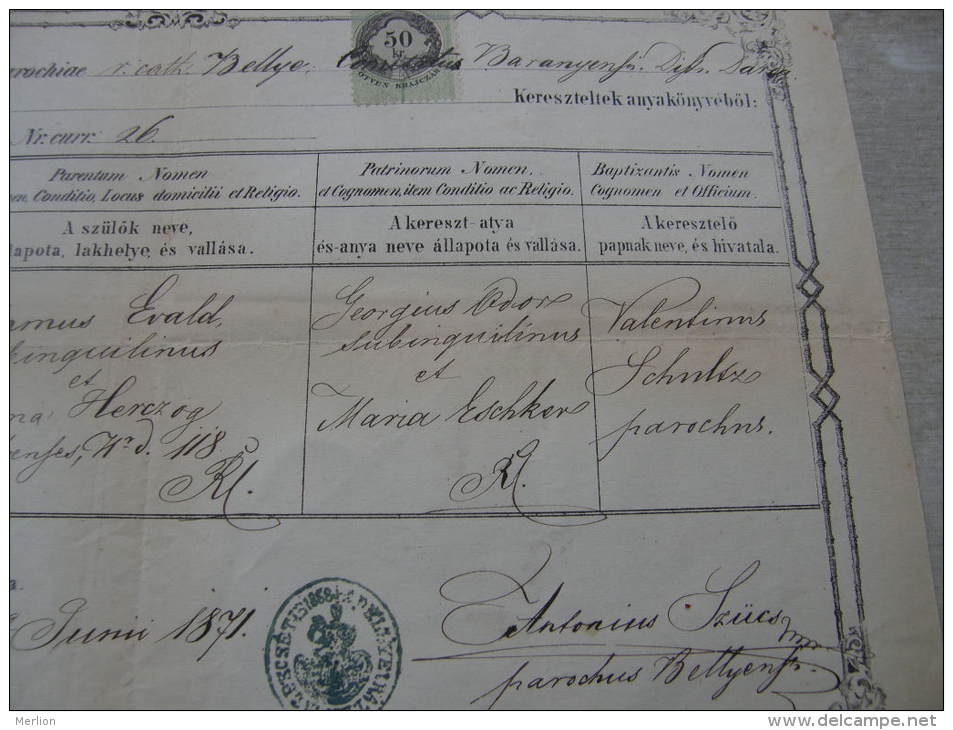 parochiae r. cath. Bellye Comitatus Baranyens. Dis. Darda
50
kr.
ÖTVEN KRAJCZÁR
Kereszteltek anyakönyvéből:
Nr. curr. 26.
Parentum Nomen
Conditio, Locus domicilii et Religio.
A szülők neve,
lakhelye, és vallása.
Patrinorum Nomen,
et Cognomen, item Conditio ac Religio.
A kereszt-atya
és-anya neve állapota és vallása.
Baptizantis Nomen
Cognomen et Officium.
A keresztelő
papnak neve, és hivatala.
Evald,
inquilinus
et
Herczog
Nr. d. 118
RC.
Georgius Odor
subinquilinus
et
Maria Eschker
RC.
Valentinus
Schultz
parochus.
Junii 1871.
Antonius Szücs
parochus Bellyens.
Merlion
www.delcampe.net